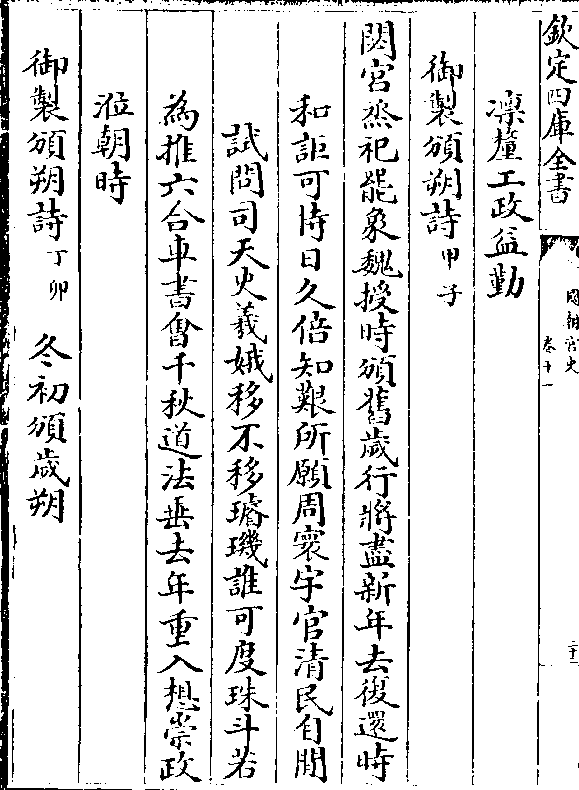 欽定四庫全書
國朝宮史
卷十一
凛釐工政益勤
御製頒朔詩甲子
閟宮烝祀罷象魏授時頒舊歲行將盡新年去復還時
和詎可恃日久倍知艱所願周寰宇官清民自閒
試問司天史羲娥移不移璿璣誰可度珠斗若
為推六合車書會千秋道法垂去年重入想崇政
涖朝時
御製頒朔詩丁卯 冬初頒歲朔